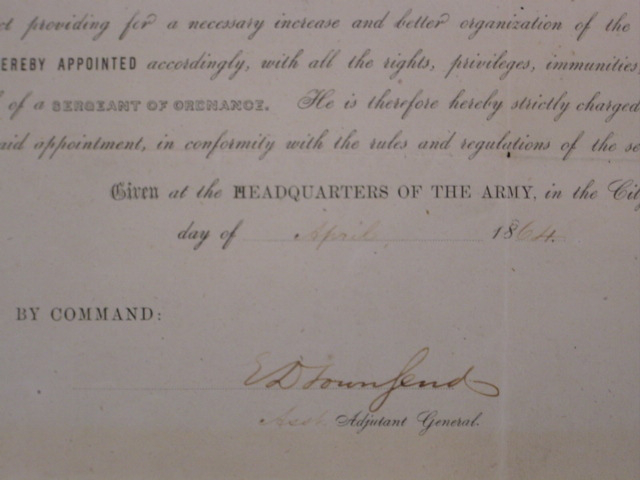 ct providing for a necessary increase and better organization of the
EREBY APPOINTED accordingly, with all the rights, privileges, immunities,
of a SERGEANT OF ORDNANCE. He is therefore hereby strictly charged
aid appointment, in conformity with the rules and regulations of the se
Given at the HEADQUARTERS OF THE ARMY, in the City
day of April 1864.
BY COMMAND:
E D Townsend
Asst Adjutant General.